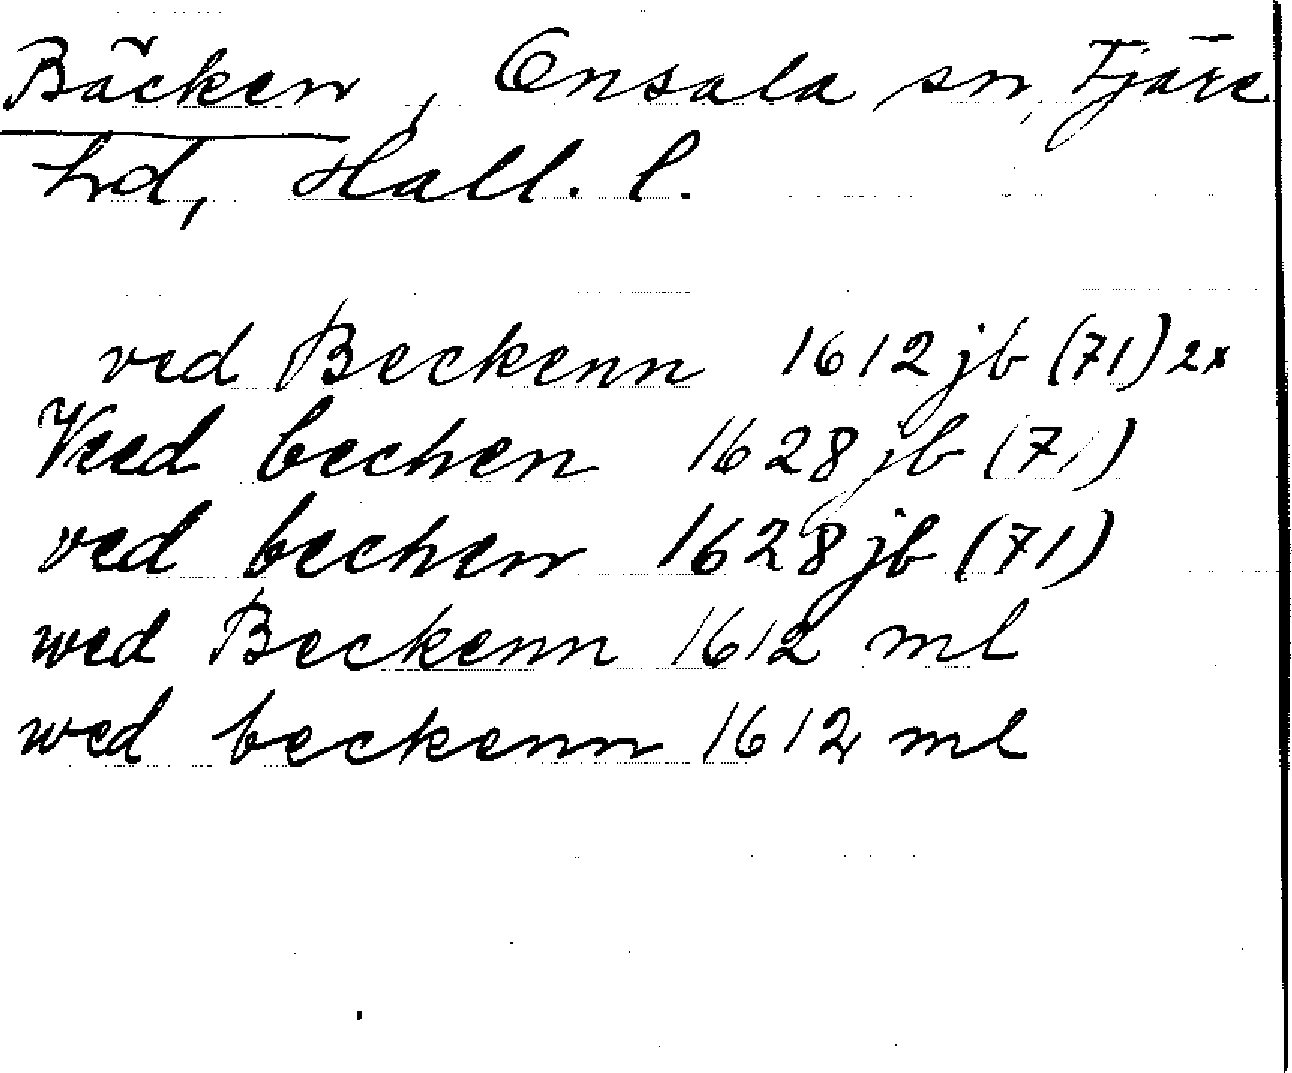 Bäcken, Onsala sn, Fjäre
hd, Hall. l.
ved Beckenn 1612 jb (71) 2x
Veed bechen 1628 jb (71)
ved bechen 1628 jb (71)
wed Beckenn 1612 ml
wed beckenn 1612 ml